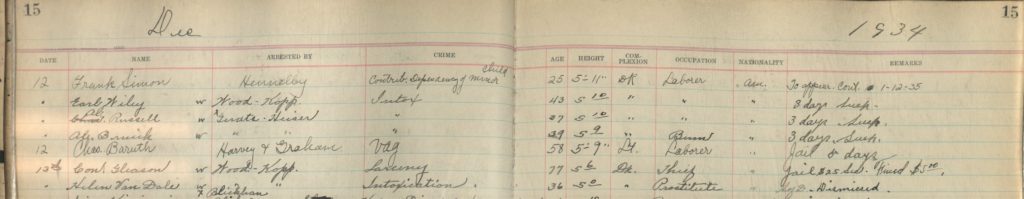 15 Dec 1934 15
DATE NAME ARRESTED BY CRIME AGE HEIGHT COMPLEXION OCCUPATION NATIONALITY REMARKS
12 Frank Simon Hennelby Contrib. Dependency of minor child 25 5-11" DK Laborer Am. To appear Cont. 1-12-35
" Earl Wiley w Wood-Kopp Intox 43 5 10 " " " 3 days Susp.
" Russell w Heiser " 37 5 10 " " " 3 days Susp.
" w " " " 39 5 9 " Bum " 3 days Susp.
12 Chas. Baruth Harvey & Graham Vag 58 5-9" Lt. Laborer " Jail 8 days
13th Gleason w Wood-Kopp. Larceny 77 5 6 Dk. Thief " Jail $25 $5.00.
" Helen Van Dale w " " Intoxication. 36 5 0 " Prostitute " Dismissed.